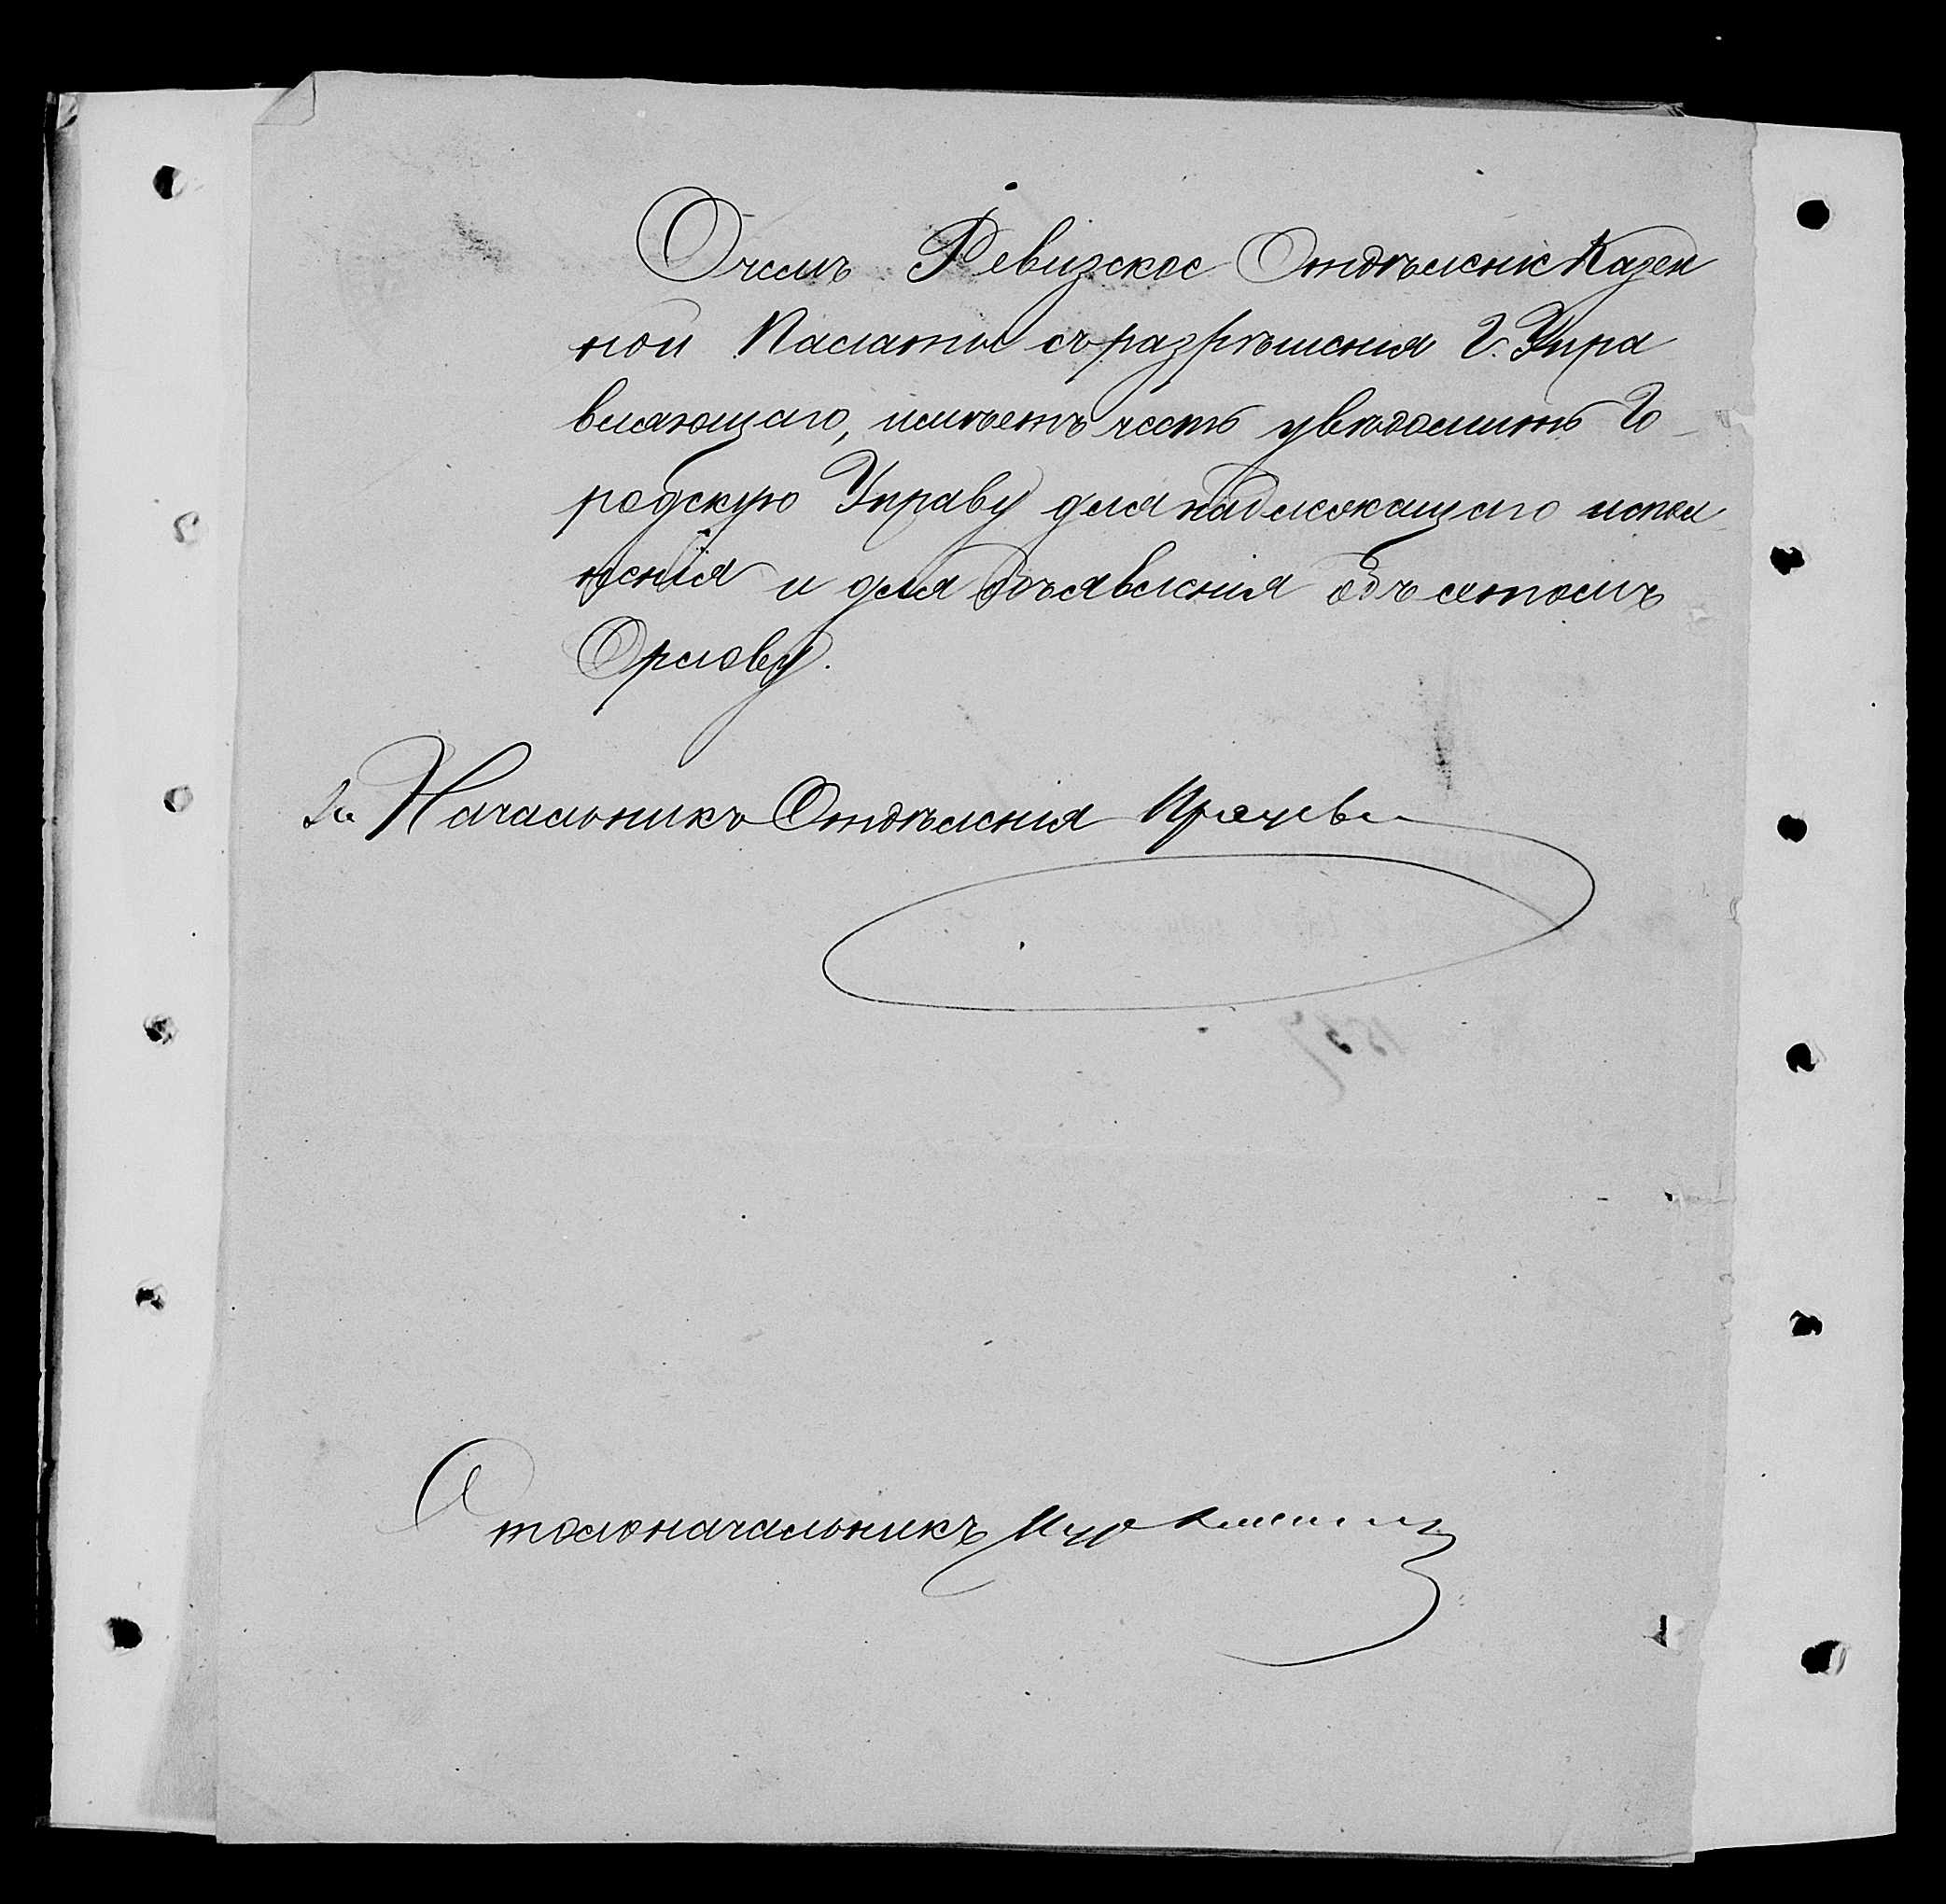 О чемъ Ревизское Отдѣленіе Казен
ной Палаты съ разрѣшенія Г. Упра
вляющаго, имѣетъ честь увѣдомить Го
родскую Управу для надлежащаго испол
ненія и для объявленія объ этомъ
Орлову.
За Начальникъ Отдѣленія
Столоначальникъ